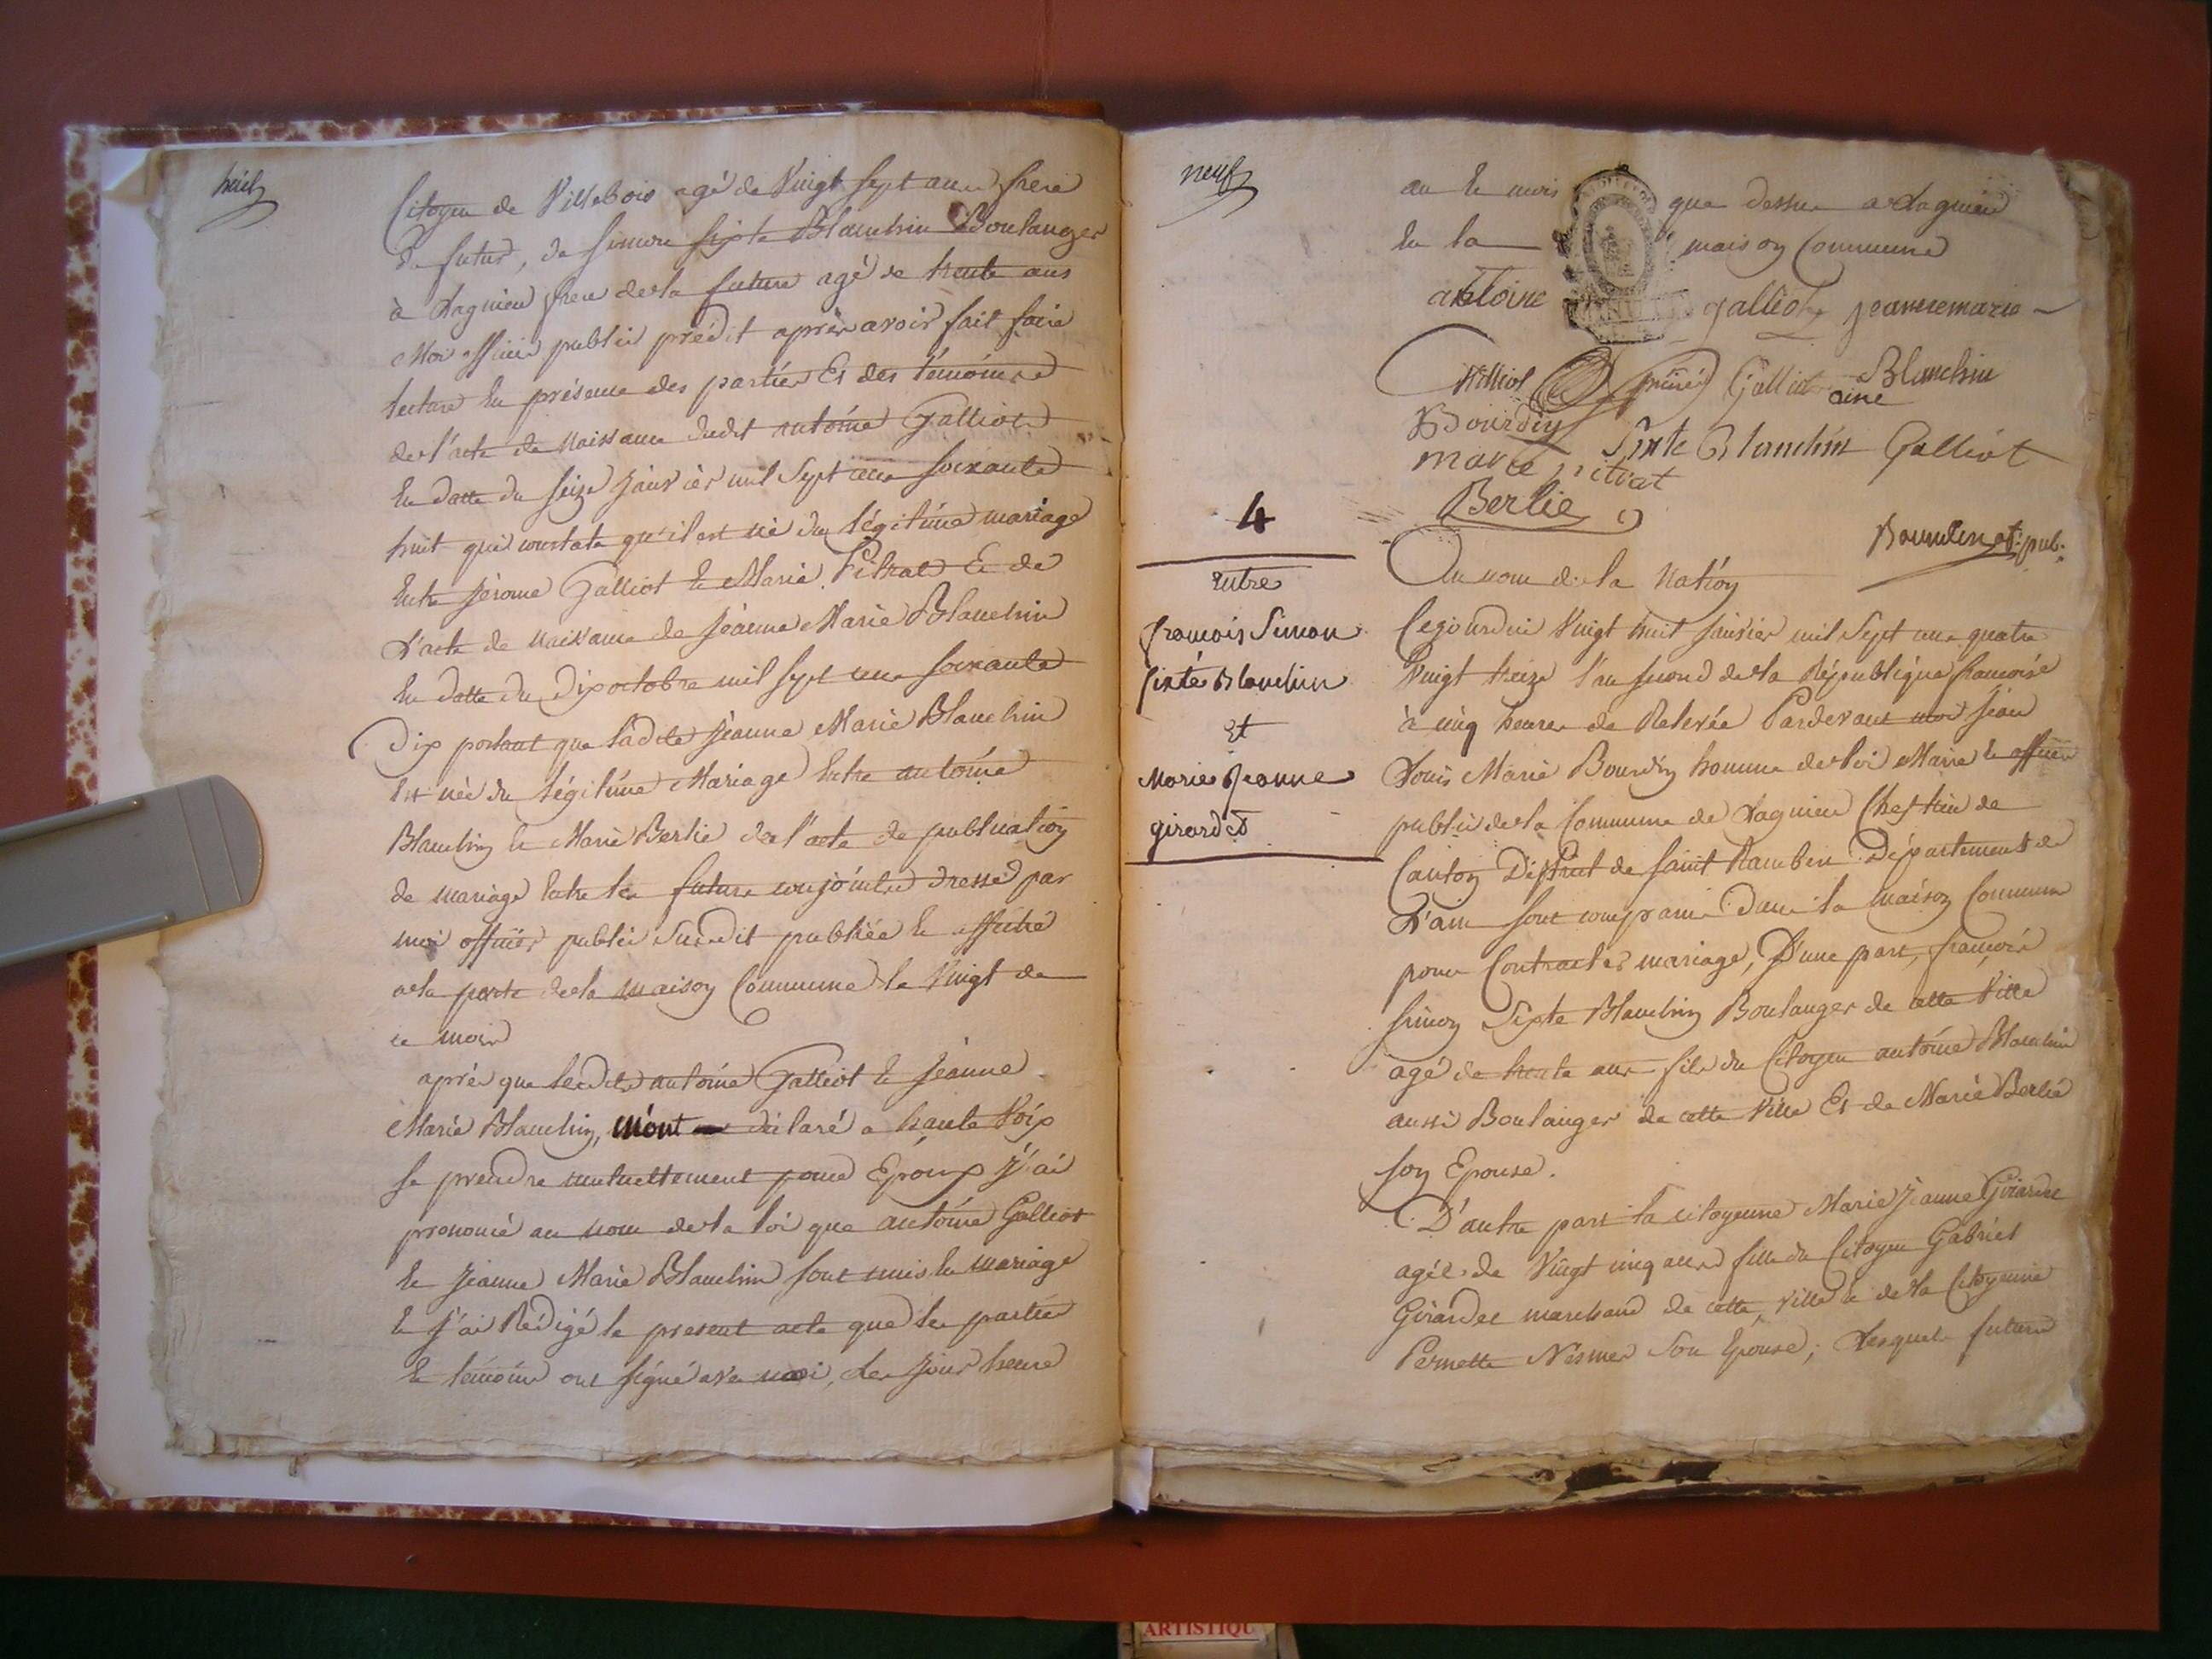 huit
Citoyen de Villebois agé de Vingt sept ans frere
du futur, de simon sixte Blanchin Boulanger
à Lagnieu frere de la future agé de trente ans
Moi officier public prédit après avoir fait faire
lecture en présence des parties Et des témoins
de l'acte de naissance dudit antoine Galliot
en datte du seize janvier mil sept cens soixante
huit qui constate qu'il est né du légitime mariage
entre jérome Galliot et Marie Pitrat Et de
l'acte de naissance de jeanne Marie Blanchin
en datte du dix octobre mil sept cens soixante
Dix portant que ladite jeanne Marie Blanchin
est née du légitime Mariage entre antoine
Blanchin et Marie Berlie de l'acte de publication
de mariage entre les futurs conjoints dressé par
moi officier public susdit publiée et affiché
a la porte de la maison Commune le Vingt de
ce mois
après que lesdits antoine Galliot et jeanne
Marie Blanchin, m'ont déclaré a haute Voix
se prendre mutuellement pour Epoux j'ai
prononcé au nom de la loi que antoine Galliot
et jeanne Marie Blanchin sont unis en mariage
et j'ai Rédigé le present acte que les parties
et témoins ont signé avec moi, les jour heure
neuf
an et mois que dessus a Lagnieu
en la maison Commune
antoine galliot jeannemarie
Galliot ainé Blanchin
Bourdin Sixte Blanchin Galliot
marie pitrat
Berlie
Bourdin of. pub.
4
entre
francois Simon
sixte Blanchin
et
Marie Jeanne
girardet
Au nom de la Nation
Cejourdui Vingt huit janvier mil sept cens quatre
Vingt treize l'an second de la République francoise
à cinq heures de Relevée Pardevant moi jean
Louis Marie Bourdin homme de loi Maire et officier
public de la Commune de Lagnieu Chef lieu de
Canton District de saint Rambert Département de
l'ain sont comparus dans la maison Commune
pour Contracter mariage, D'une part, françois
simon Sixte Blanchin Boulanger de cette Ville
agé de trente ans fils du Citoyen antoine Blanchin
aussi Boulanger de cette Ville Et de Marie Berlie
son Epouse.
D'autre part la citoyenne Marie jeanne Girardet
agée de Vingt cinq ans fille du Citoyen Gabriel
Girardet marchand de cette ville et de la Citoyenne
Pernette Nesmes Son Epouse; Lesquels futurs
ARTISTIQU